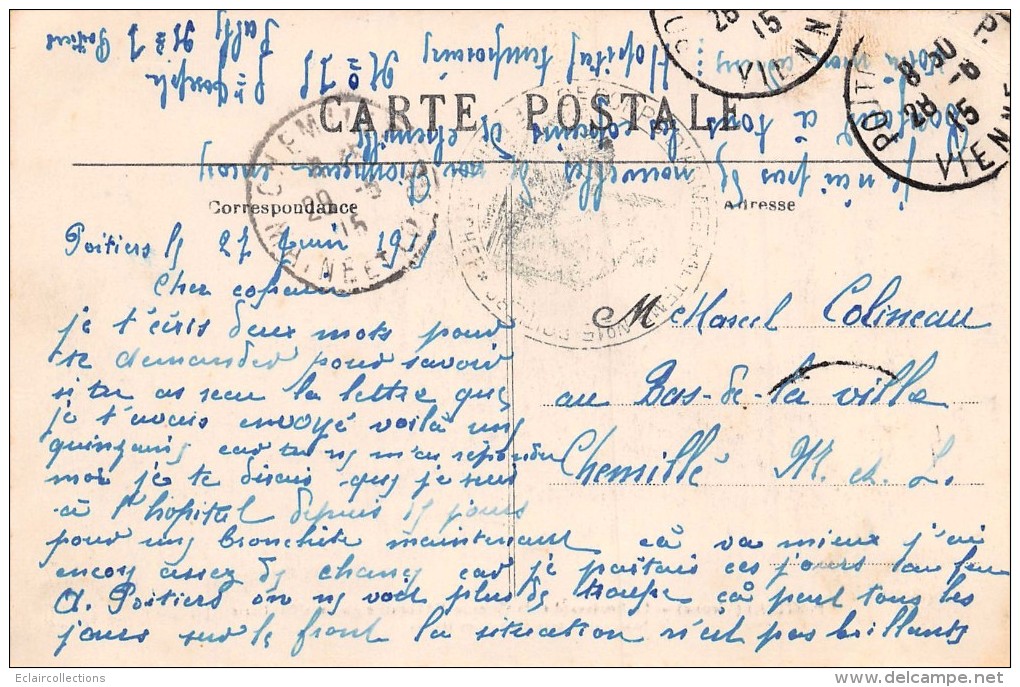 CARTE POSTALE
Correspondance
Adresse
Poitiers le 27 Juin 1915
Cher copain
je t'écris deux mots pour
te demander pour savoir
si tu as reçu la lettre que
je t'avais envoyé voilà une
quinzaine car tu ne m'as répondu
moi je te disais que je suis
à l'hopital depuis 15 jours
pour une bronchite maintenant cà va mieux j'ai
encore assez de chance car je partais ces jours
A. Poitiers on ne voit plus de troupe cà part tous les
jours sur le front la situation n'est pas brillante
M Marcel Colineau
au Bas-de-la ville
Chemillé M. et. L.
je n'ai pas de nouvelles de
à tous les copains de chemillé
Hopital temporaire
No 15
St Joseph
Salle
Poitiers
CHEMILLÉ
MAINE ET L
29
15
28
15
VIENN
POITI
8 30
28 15
VIENNE
Eclaircollections
delcampe.net